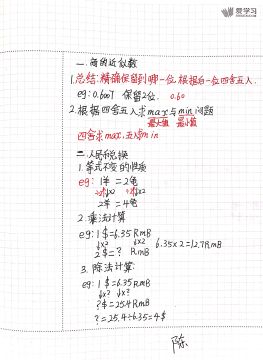 爱学习
一.商的近似数
1.总结:精确保留到哪一位,根据后一位四舍五入.
eg:0.6007 保留2位. 0.60
2.根据四舍五入求max与min问题
最大值 最小值
四舍求max,五入求min
二.人民币兑换
1.等式不变的性质
eg:1羊=2兔
×2 ×2
2羊=4兔
2.乘法计算
eg:1$=6.35RmB
×2 ×2 6.35×2=12.7RmB
2$=? RmB
3.除法计算
eg:1$=6.35RmB
×? ×?
?$=25.4RmB
?=25.4÷6.35=4$
陈